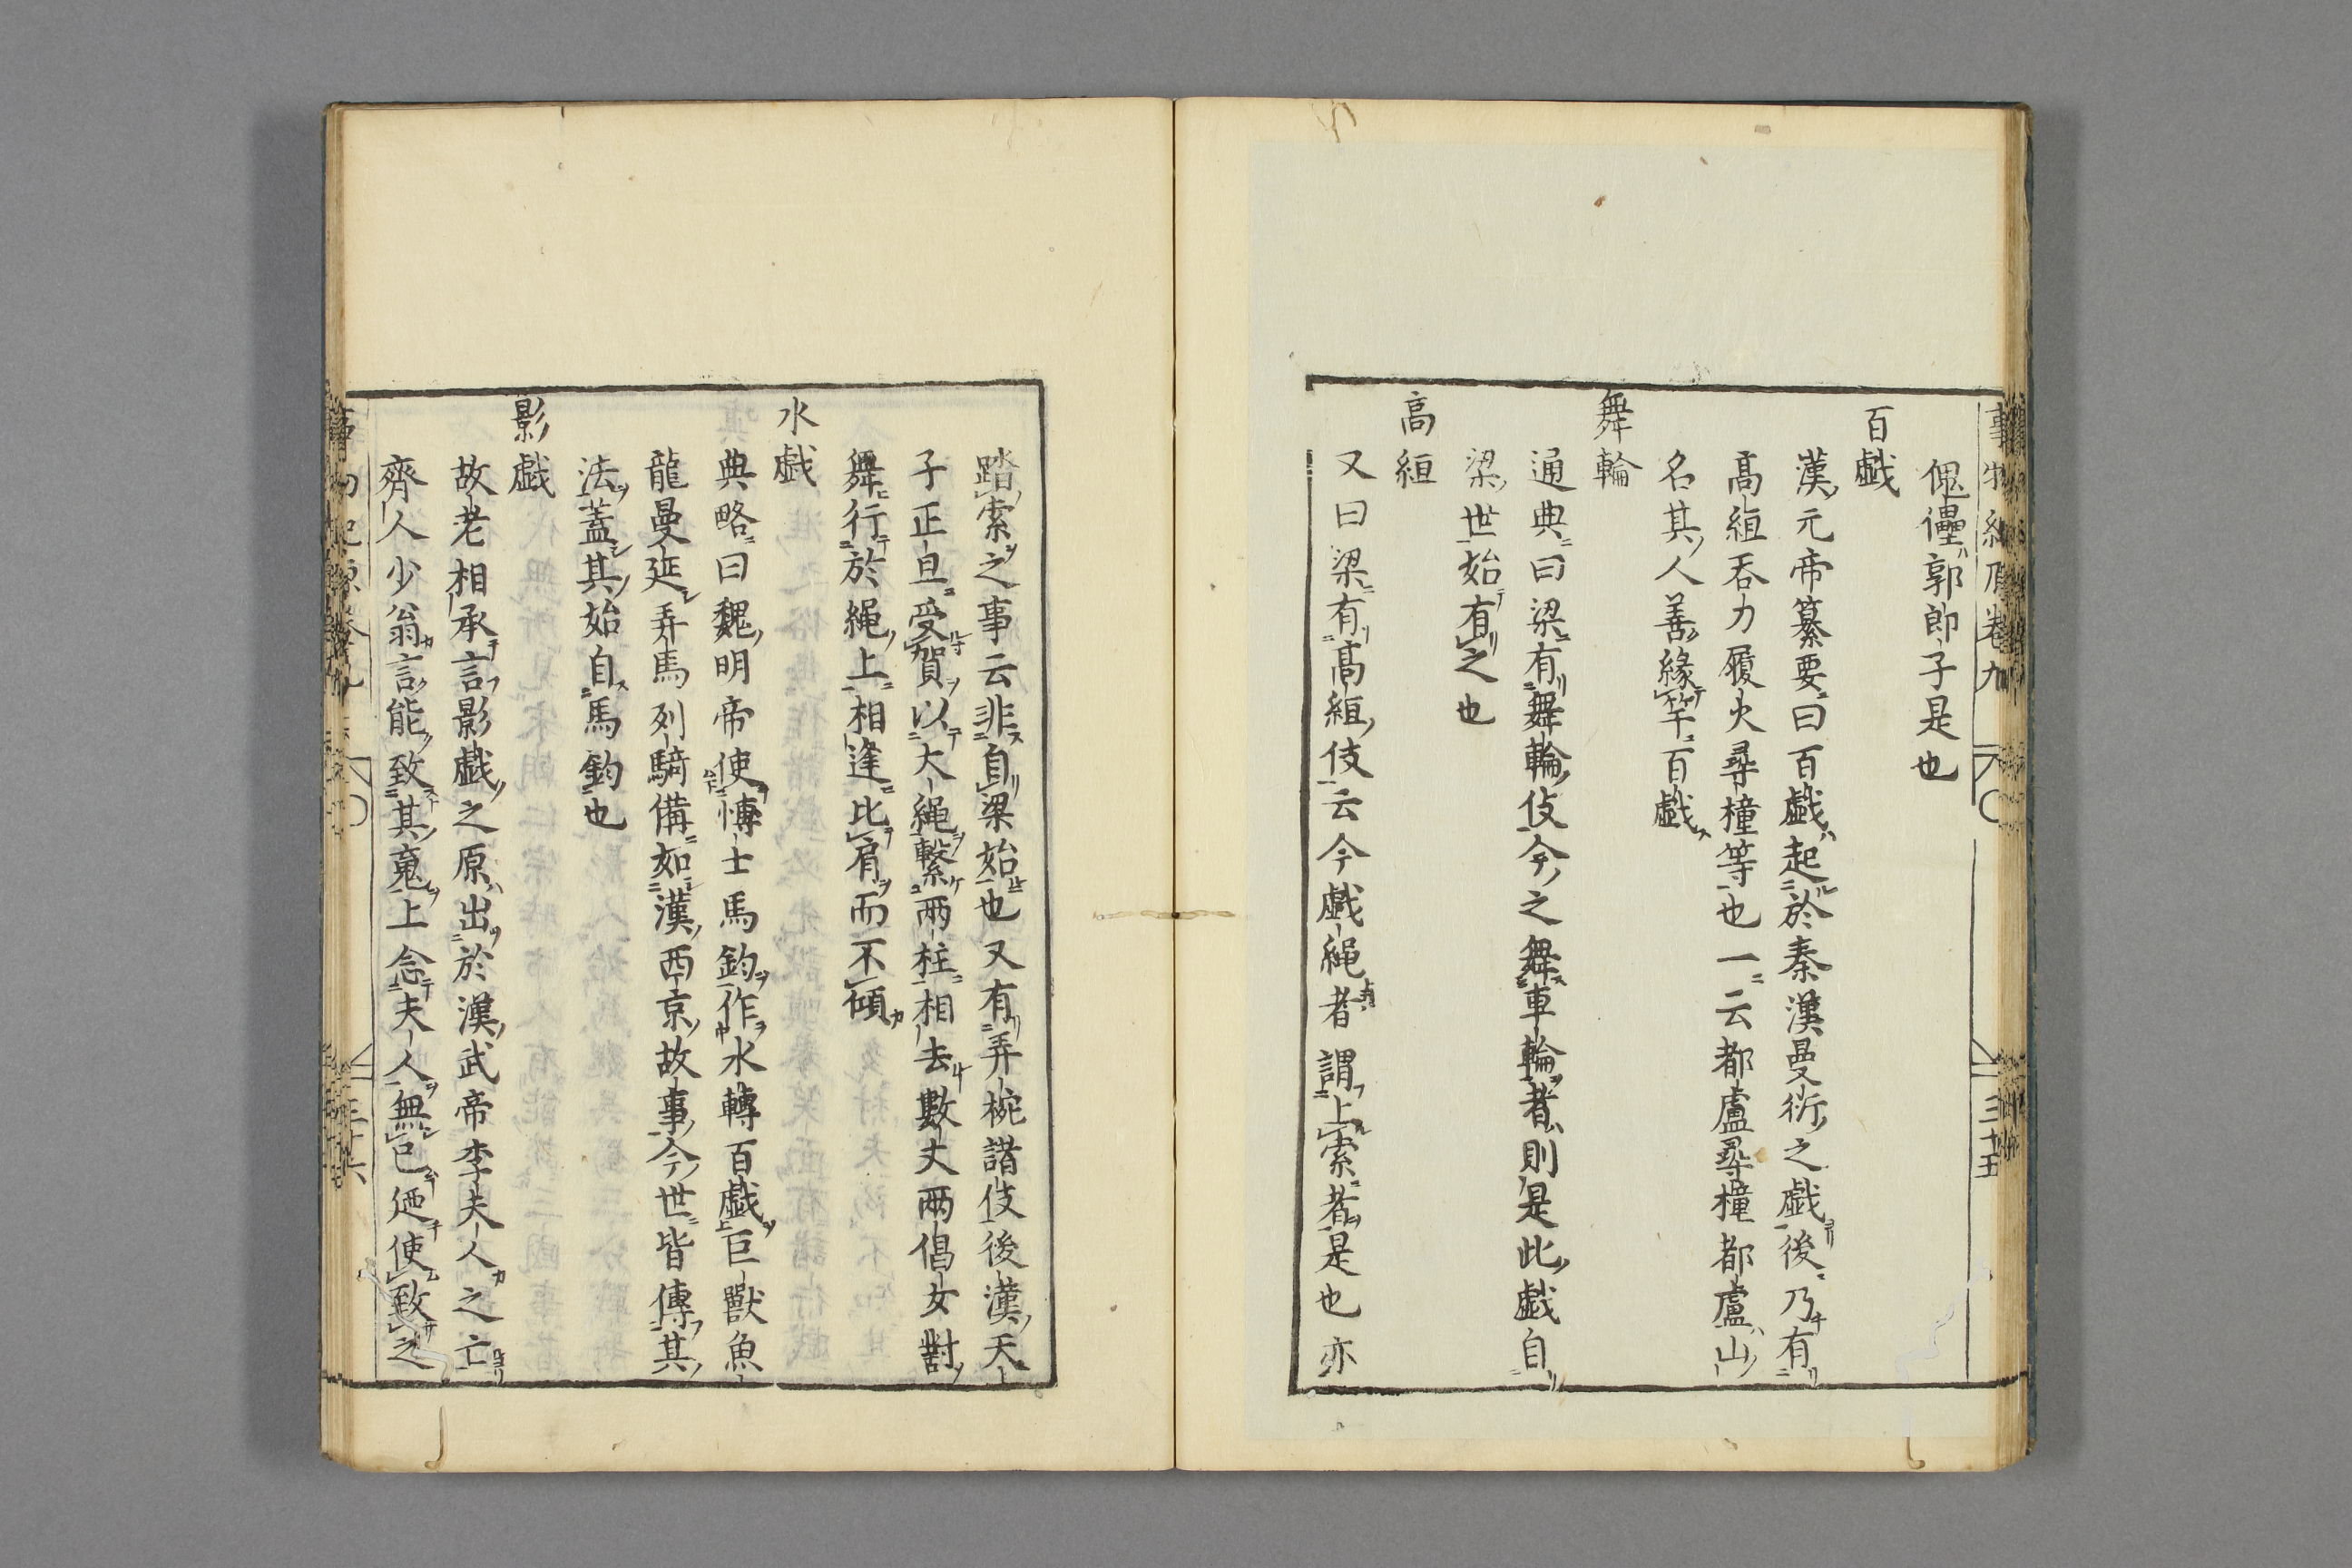 事物紀原卷九 三十五
傀儡郭郎子是也
百戯
漢元帝纂要曰百戯起於秦漢曼衍之戯後乃有
髙絙吞刀履火尋橦等也一云都盧尋橦都盧山
名其人善縁竿百戯
舞輪
通典曰梁有舞輪伎今之舞車輪者則是此戯自
梁世始有之也
髙絙
又曰梁有髙絙伎云今戯繩者謂上索者是也亦
踏索之事云非自梁始也又有弄椀諸伎後漢天
子正旦受賀以大繩繋兩柱相去數丈兩倡女對
舞行於繩上相逢比肩而不傾
水戯
典略曰魏明帝使博士馬鈞作水轉百戯巨獸魚
龍曼延弄馬列騎備如漢西京故事今世皆傳其
法蓋其始自馬鈞也
影戯
故老相承言影戯之原出於漢武帝李夫人之亡
齊人少翁言能致其䰟上念夫人無已廼使致之